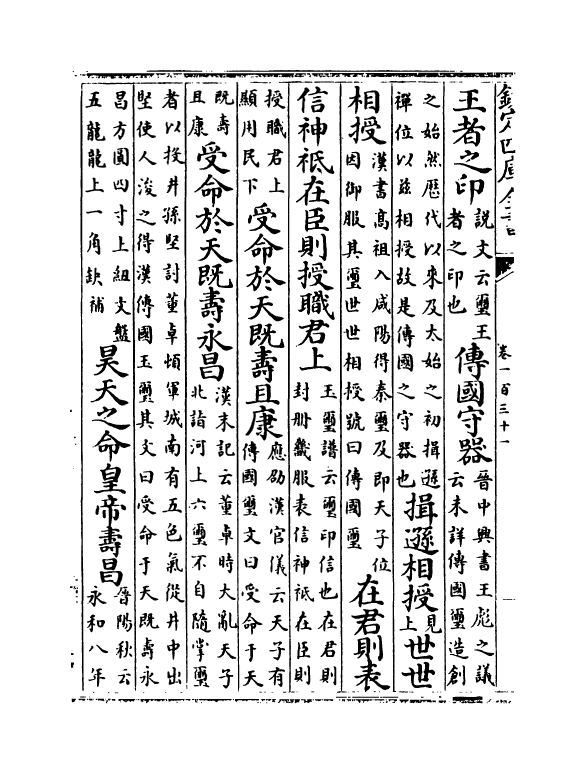 欽定四庫全書
卷一百三十一
王者之印說文云璽王者之印也傳國守器晉中興書王彪之議云未詳傳國璽造創
之始然歷代以來及太始之初揖遜禪位以茲相授故是傳國之守器也揖遜相授見上世世
相授漢書高祖入咸陽得秦璽及即天子位因御服其璽世世相授號曰傳國璽在君則表
信神祗在臣則授職君上玉璽譜云璽印信也在君則封册畿服表信神祗在臣則
授職君上顯用民下受命於天既壽且康應劭漢官儀云天子有傳國璽文曰受命于天
既壽且康受命於天既壽永昌漢末記云董卓時大亂天子北詣河上六璽不自隨掌璽
者以投井孫堅討董卓頓軍城南有五色氣從井中出堅使人浚之得漢傳國玉璽其文曰受命于天既壽永
昌方圜四寸上紐文盤五龍龍上一角缺補昊天之命皇帝壽昌晉陽秋云永和八年